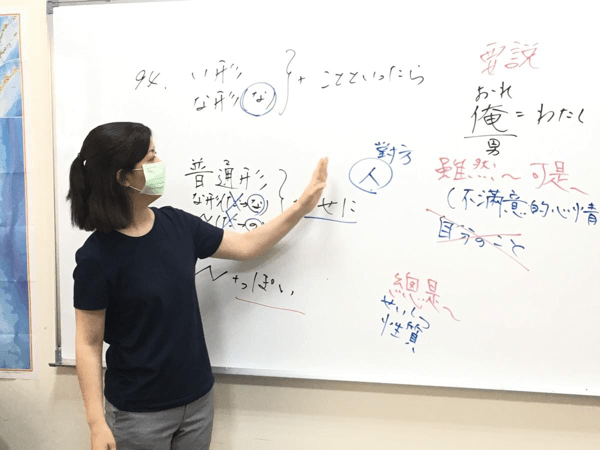 94. い形
な形(な) } + ことといったら
普通形
な形(だ→な)
N(だ→の) } + くせに
N + っぽい
對方
人
要説
おれ
俺 = わたし
男
雖然～可是～
(不滿意的心情
自分のこと
總是～
せいしつ
性質